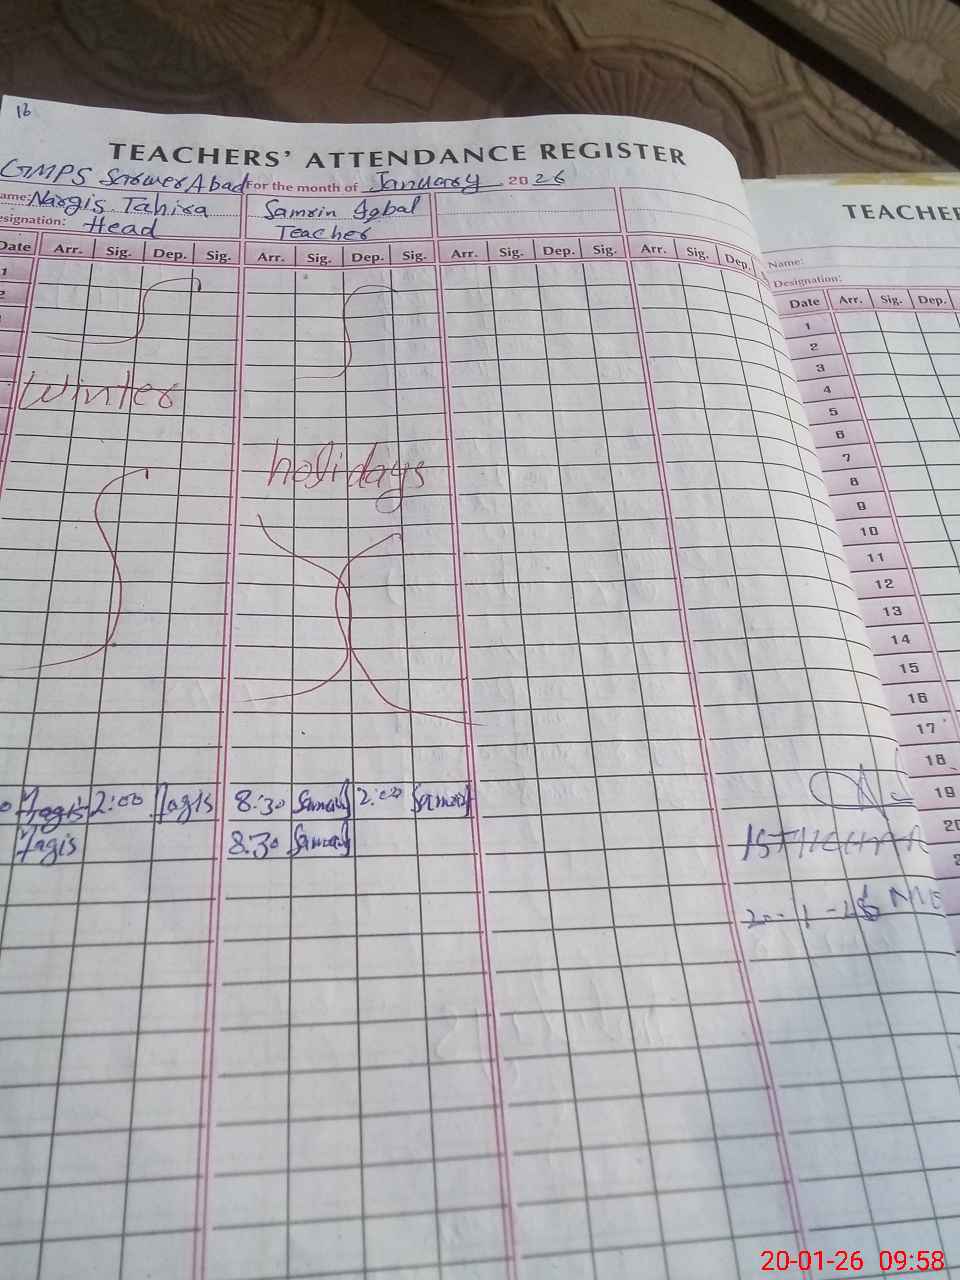 16
TEACHERS' ATTENDANCE REGISTER
GMPS SarwerAbad For the month of January 2026
ame: Nargis Tahira Samrin Iqbal
esignation: Head Teacher
Date Arr. Sig. Dep. Sig. Arr. Sig. Dep. Sig. Arr. Sig. Dep. Sig. Arr. Sig. Dep.
1
2
Winter
holidays
Nargis 2:00 Nargis 8:30 Samrin 2:00 Samrin
Nargis 8:30 Samrin
20-1-26
TEACHE
Name:
Designation:
Date Arr. Sig. Dep.
1
2
3
4
5
6
7
8
9
10
11
12
13
14
15
16
17
18
19
20
20-01-26 09:58